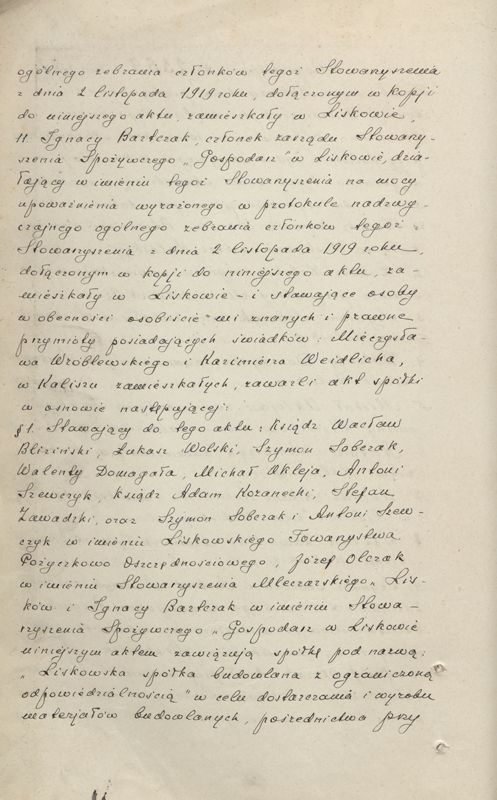 ogólnego zebrania członków tegoż Stowarzyszenia
z dnia 2 listopada 1919 roku, dołączonym w kopji
do niniejszego aktu, zamieszkały w Liskowie,
11 Ignacy Bartczak, członek zarządu Stowarzy-
szenia Spożywczego „Gospodarz" w Liskowie, dzia-
łający w imieniu tegoż Stowarzyszenia na mocy
upoważnienia wyrażonego w protokule nadzwy-
czajnego ogólnego zebrania członków tegoż
Stowarzyszenia z dnia 2 listopada 1919 roku,
dołączonym w kopji do niniejszego aktu, za-
mieszkały w Liskowie – i stawające osoby
w obecności osobiście mi znanych i prawne
przymioty posiadających świadków: Mieczysła-
wa Wróblewskiego i Kazimierza Weidlicha,
w Kaliszu zamieszkałych, zawarli akt spółki
w osnowie następującej:
§ 1. Stawający do tego aktu: Ksiądz Wacław
Bliziński, Łukasz Wolski, Szymon Sobczak,
Walenty Domagała, Michał Okleja, Antoni
Szewczyk, Ksiądz Adam Kozanecki, Stefan
Zawadzki, oraz Szymon Sobczak i Antoni Szew-
czyk w imieniu Liskowskiego Towarzystwa
Pożyczkowo Oszczędnościowego, Józef Olczak
w imieniu Stowarzyszenia Mleczarskiego „Lis-
ków i Ignacy Bartczak w imieniu Stowa-
rzyszenia Spożywczego „Gospodarz w Liskowie
niniejszym aktem zawiązują spółkę pod nazwą:
„Liskowska spółka budowlana z ograniczoną
odpowiedzialnością" w celu dostarczania i wyrobu
materjałów budowlanych, pośrednictwa przy